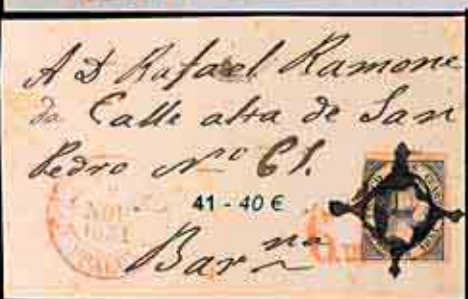 A D Rafael Ramone
da Calle alta de San
Pedro Nº 61.
41 - 40 €
NOV
Barna